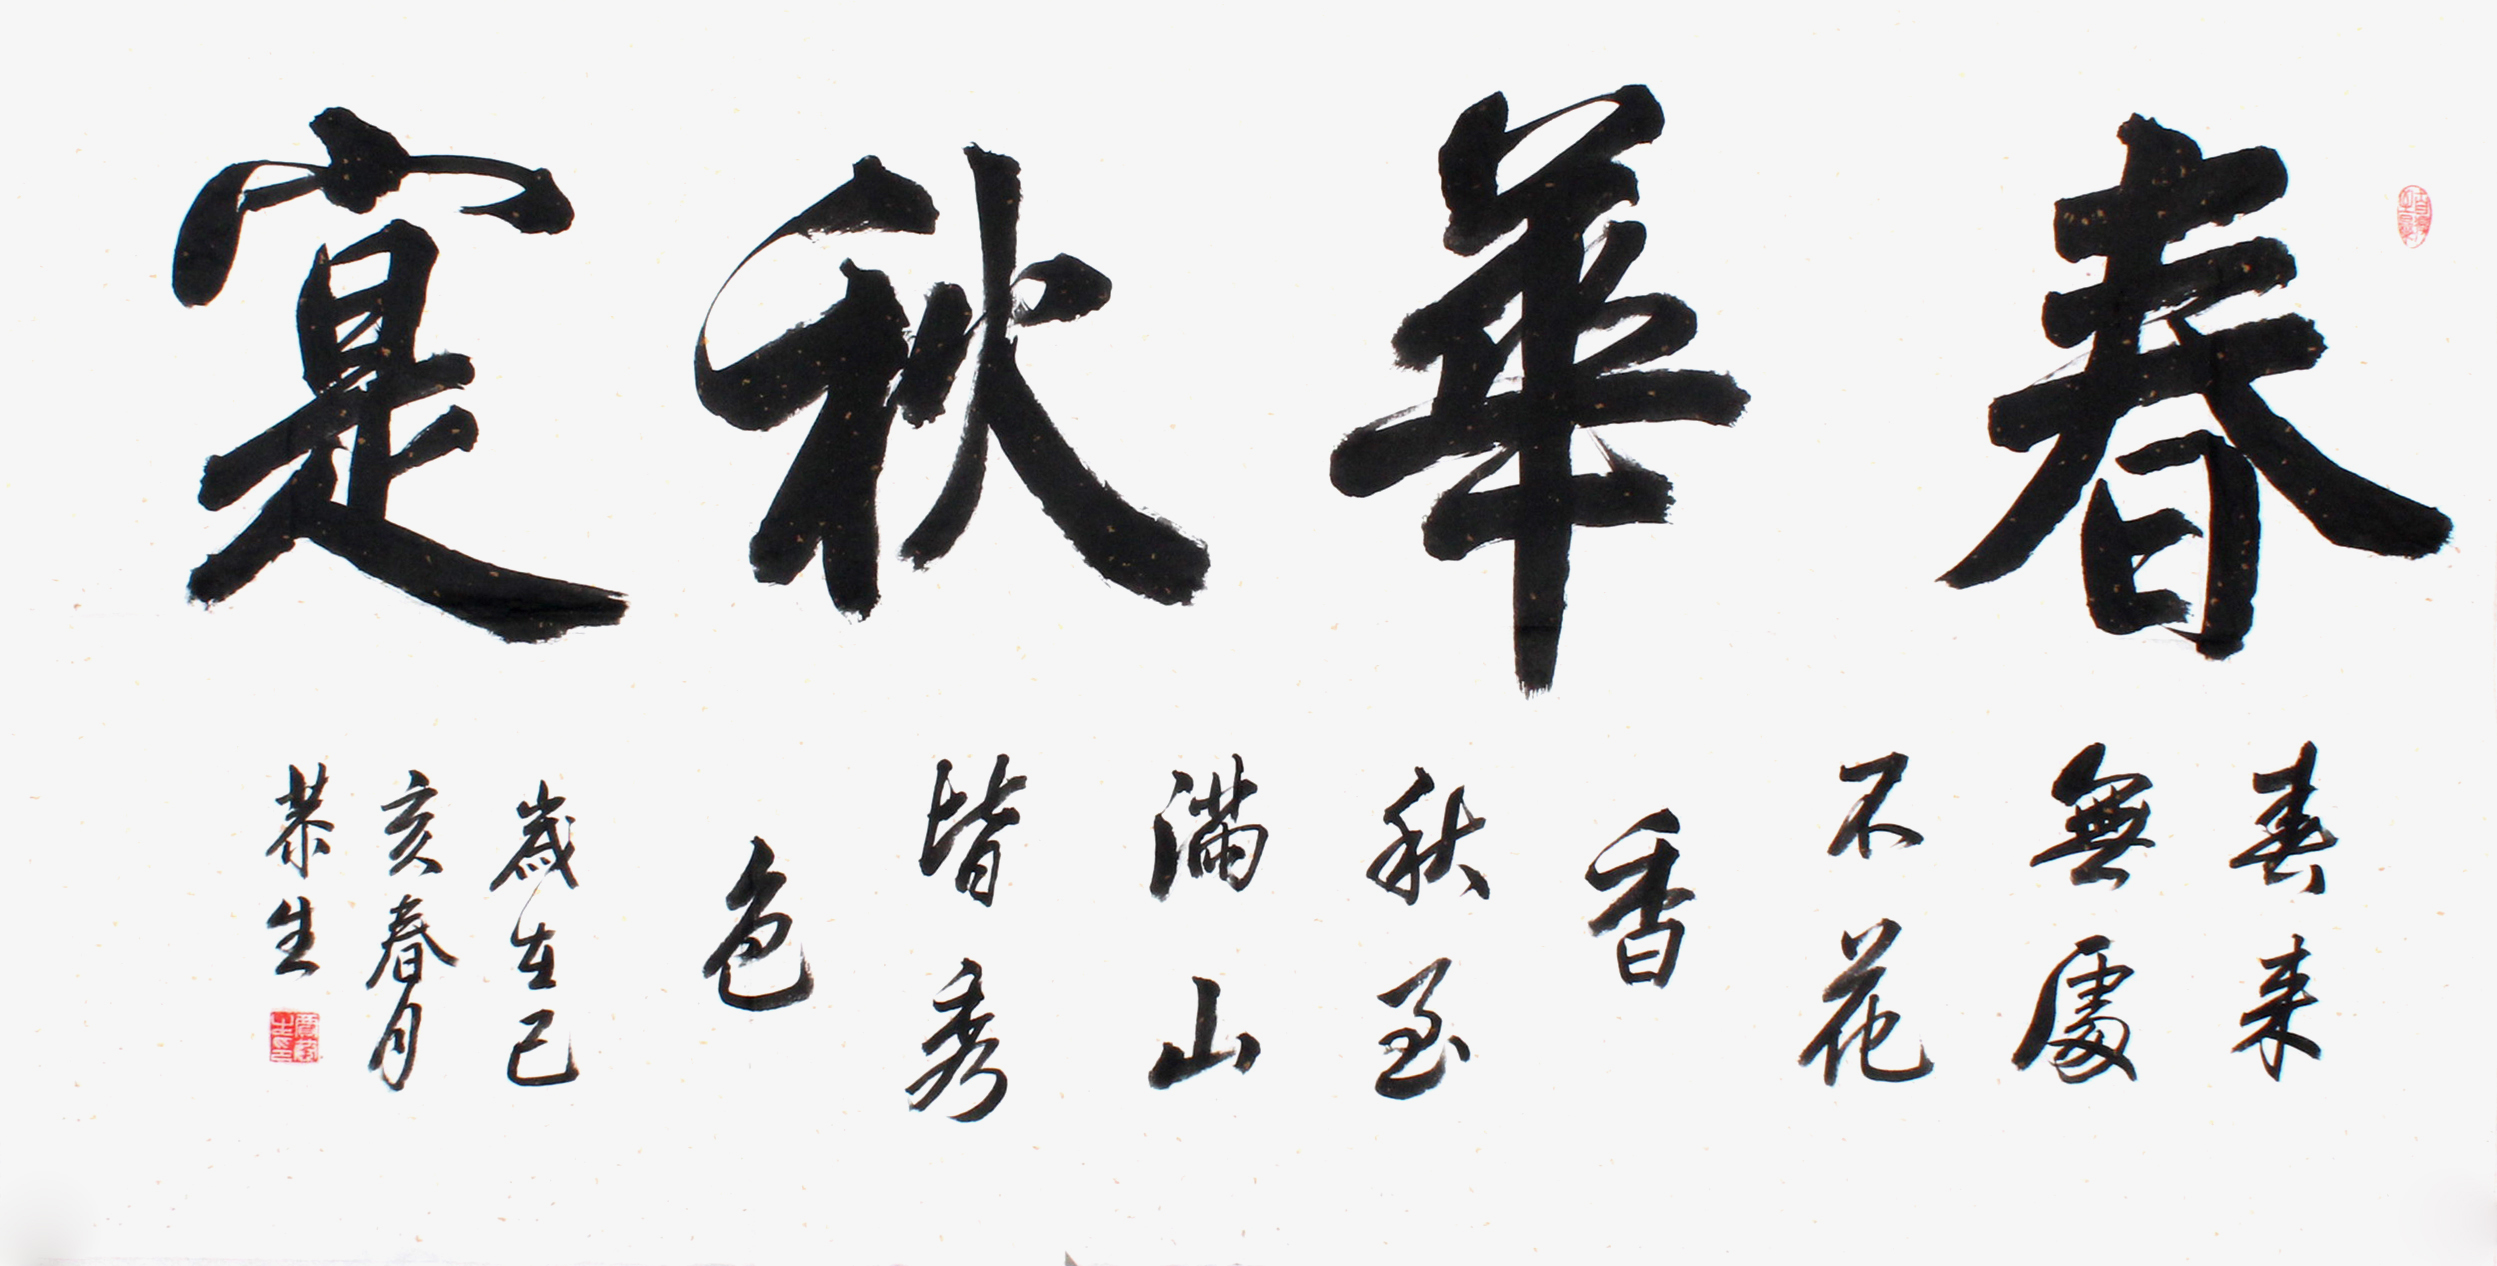 春華秋寔
春来
無處
不花
香
秋至
滿山
皆秀
色
歲在己
亥春月
恭生